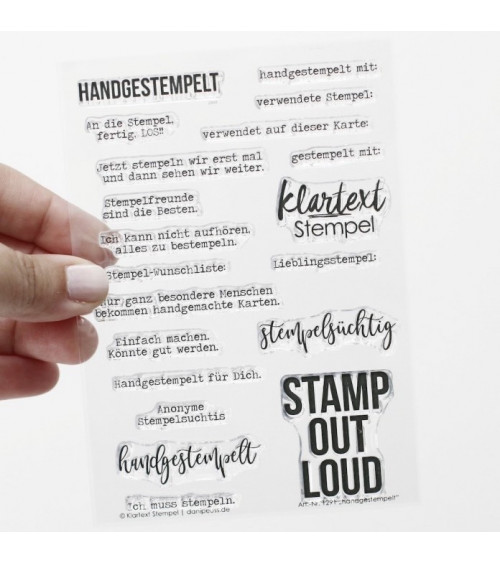 HANDGESTEMPELT
handgestempelt mit:
verwendete Stempel:
An die Stempel,
fertig, LOS!!
verwendet auf dieser Karte:
Jetzt stempeln wir erst mal
und dann sehen wir weiter.
gestempelt mit:
Stempelfreunde
sind die Besten.
klartext
Stempel
Ich kann nicht aufhören,
alles zu bestempeln.
Stempel-Wunschliste:
Lieblingsstempel:
Nur ganz besondere Menschen
bekommen handgemachte Karten.
stempelsüchtig
Einfach machen.
Könnte gut werden.
Handgestempelt für Dich.
STAMP
OUT
LOUD
Anonyme
Stempelsuchtis
handgestempelt
Ich muss stempeln.
© Klartext Stempel | danipeuss.de
"handgestempelt"